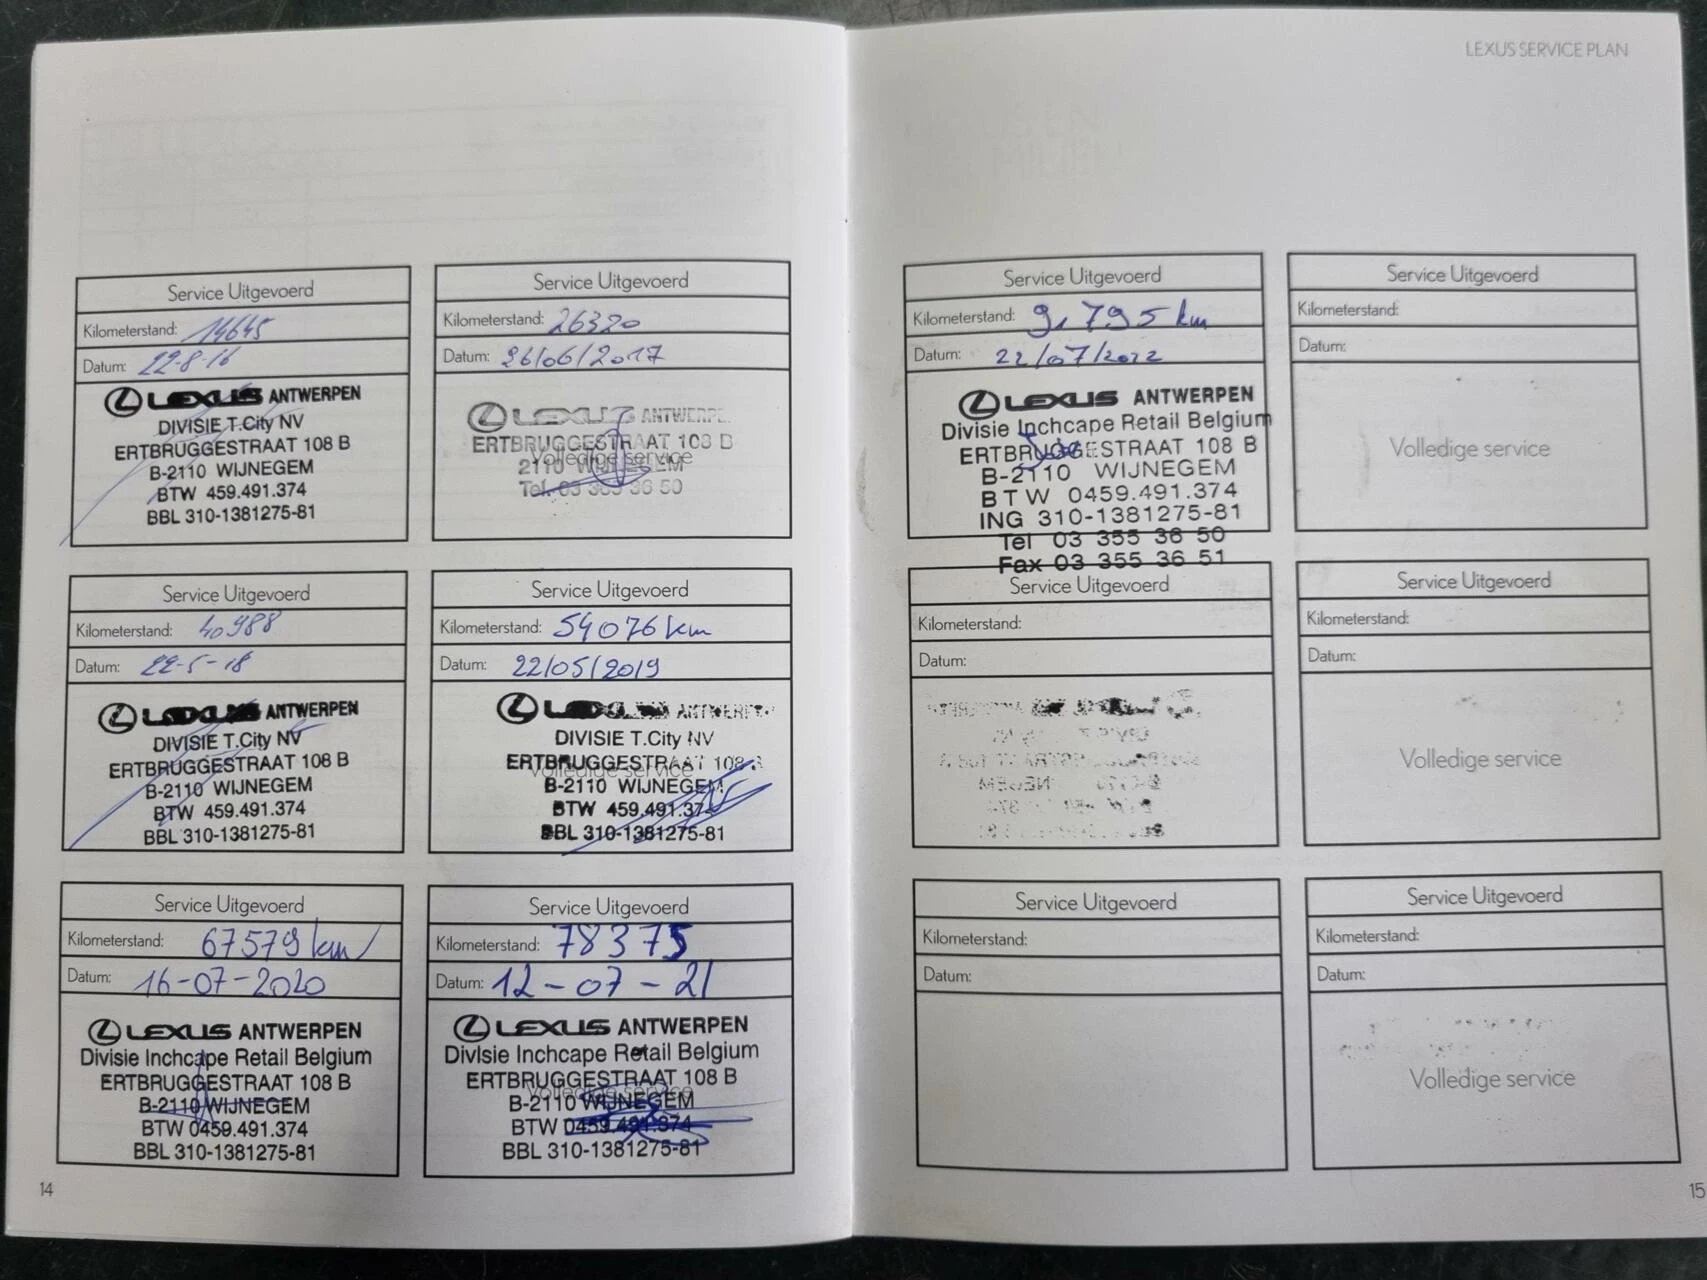 LEXUS SERVICE PLAN
Service Uitgevoerd
Kilometerstand: 14645
Datum: 22-8-16
LEXUS ANTWERPEN
DIVISIE T.City NV
ERTBRUGGESTRAAT 108 B
B-2110 WIJNEGEM
BTW 459.491.374
BBL 310-1381275-81
Service Uitgevoerd
Kilometerstand: 26320
Datum: 26/06/2017
LEXUS ANTWERPE
ERTBRUGGESTRAAT 108 B
Volledige service
2110 WIJNEGEM
Tel. 03 355 36 50
Service Uitgevoerd
Kilometerstand: 40988
Datum: 22-5-18
LEXUS ANTWERPEN
DIVISIE T.City NV
ERTBRUGGESTRAAT 108 B
B-2110 WIJNEGEM
BTW 459.491.374
BBL 310-1381275-81
Service Uitgevoerd
Kilometerstand: 54076 km
Datum: 22/05/2019
LEXUS ANTWERPEN
DIVISIE T.City NV
ERTBRUGGESTRAAT 108 B
Volledige service
B-2110 WIJNEGEM
BTW 459.491.374
BBL 310-1381275-81
Service Uitgevoerd
Kilometerstand: 67579 km
Datum: 16-07-2020
LEXUS ANTWERPEN
Divisie Inchcape Retail Belgium
ERTBRUGGESTRAAT 108 B
B-2110 WIJNEGEM
BTW 0459.491.374
BBL 310-1381275-81
Service Uitgevoerd
Kilometerstand: 78375
Datum: 12-07-21
LEXUS ANTWERPEN
Divisie Inchcape Retail Belgium
ERTBRUGGESTRAAT 108 B
Volledige service
B-2110 WIJNEGEM
BTW 0459.491.374
BBL 310-1381275-81
14
Service Uitgevoerd
Kilometerstand: 91.795 km
Datum: 22/07/2022
LEXUS ANTWERPEN
Divisie Inchcape Retail Belgium
ERTBRUGGESTRAAT 108 B
B-2110 WIJNEGEM
BTW 0459.491.374
ING 310-1381275-81
Tel 03 355 36 50
Fax 03 355 36 51
Service Uitgevoerd
Kilometerstand:
Datum:
Volledige service
Service Uitgevoerd
Kilometerstand:
Datum:
Service Uitgevoerd
Kilometerstand:
Datum:
Volledige service
Service Uitgevoerd
Kilometerstand:
Datum:
Service Uitgevoerd
Kilometerstand:
Datum:
Volledige service
15